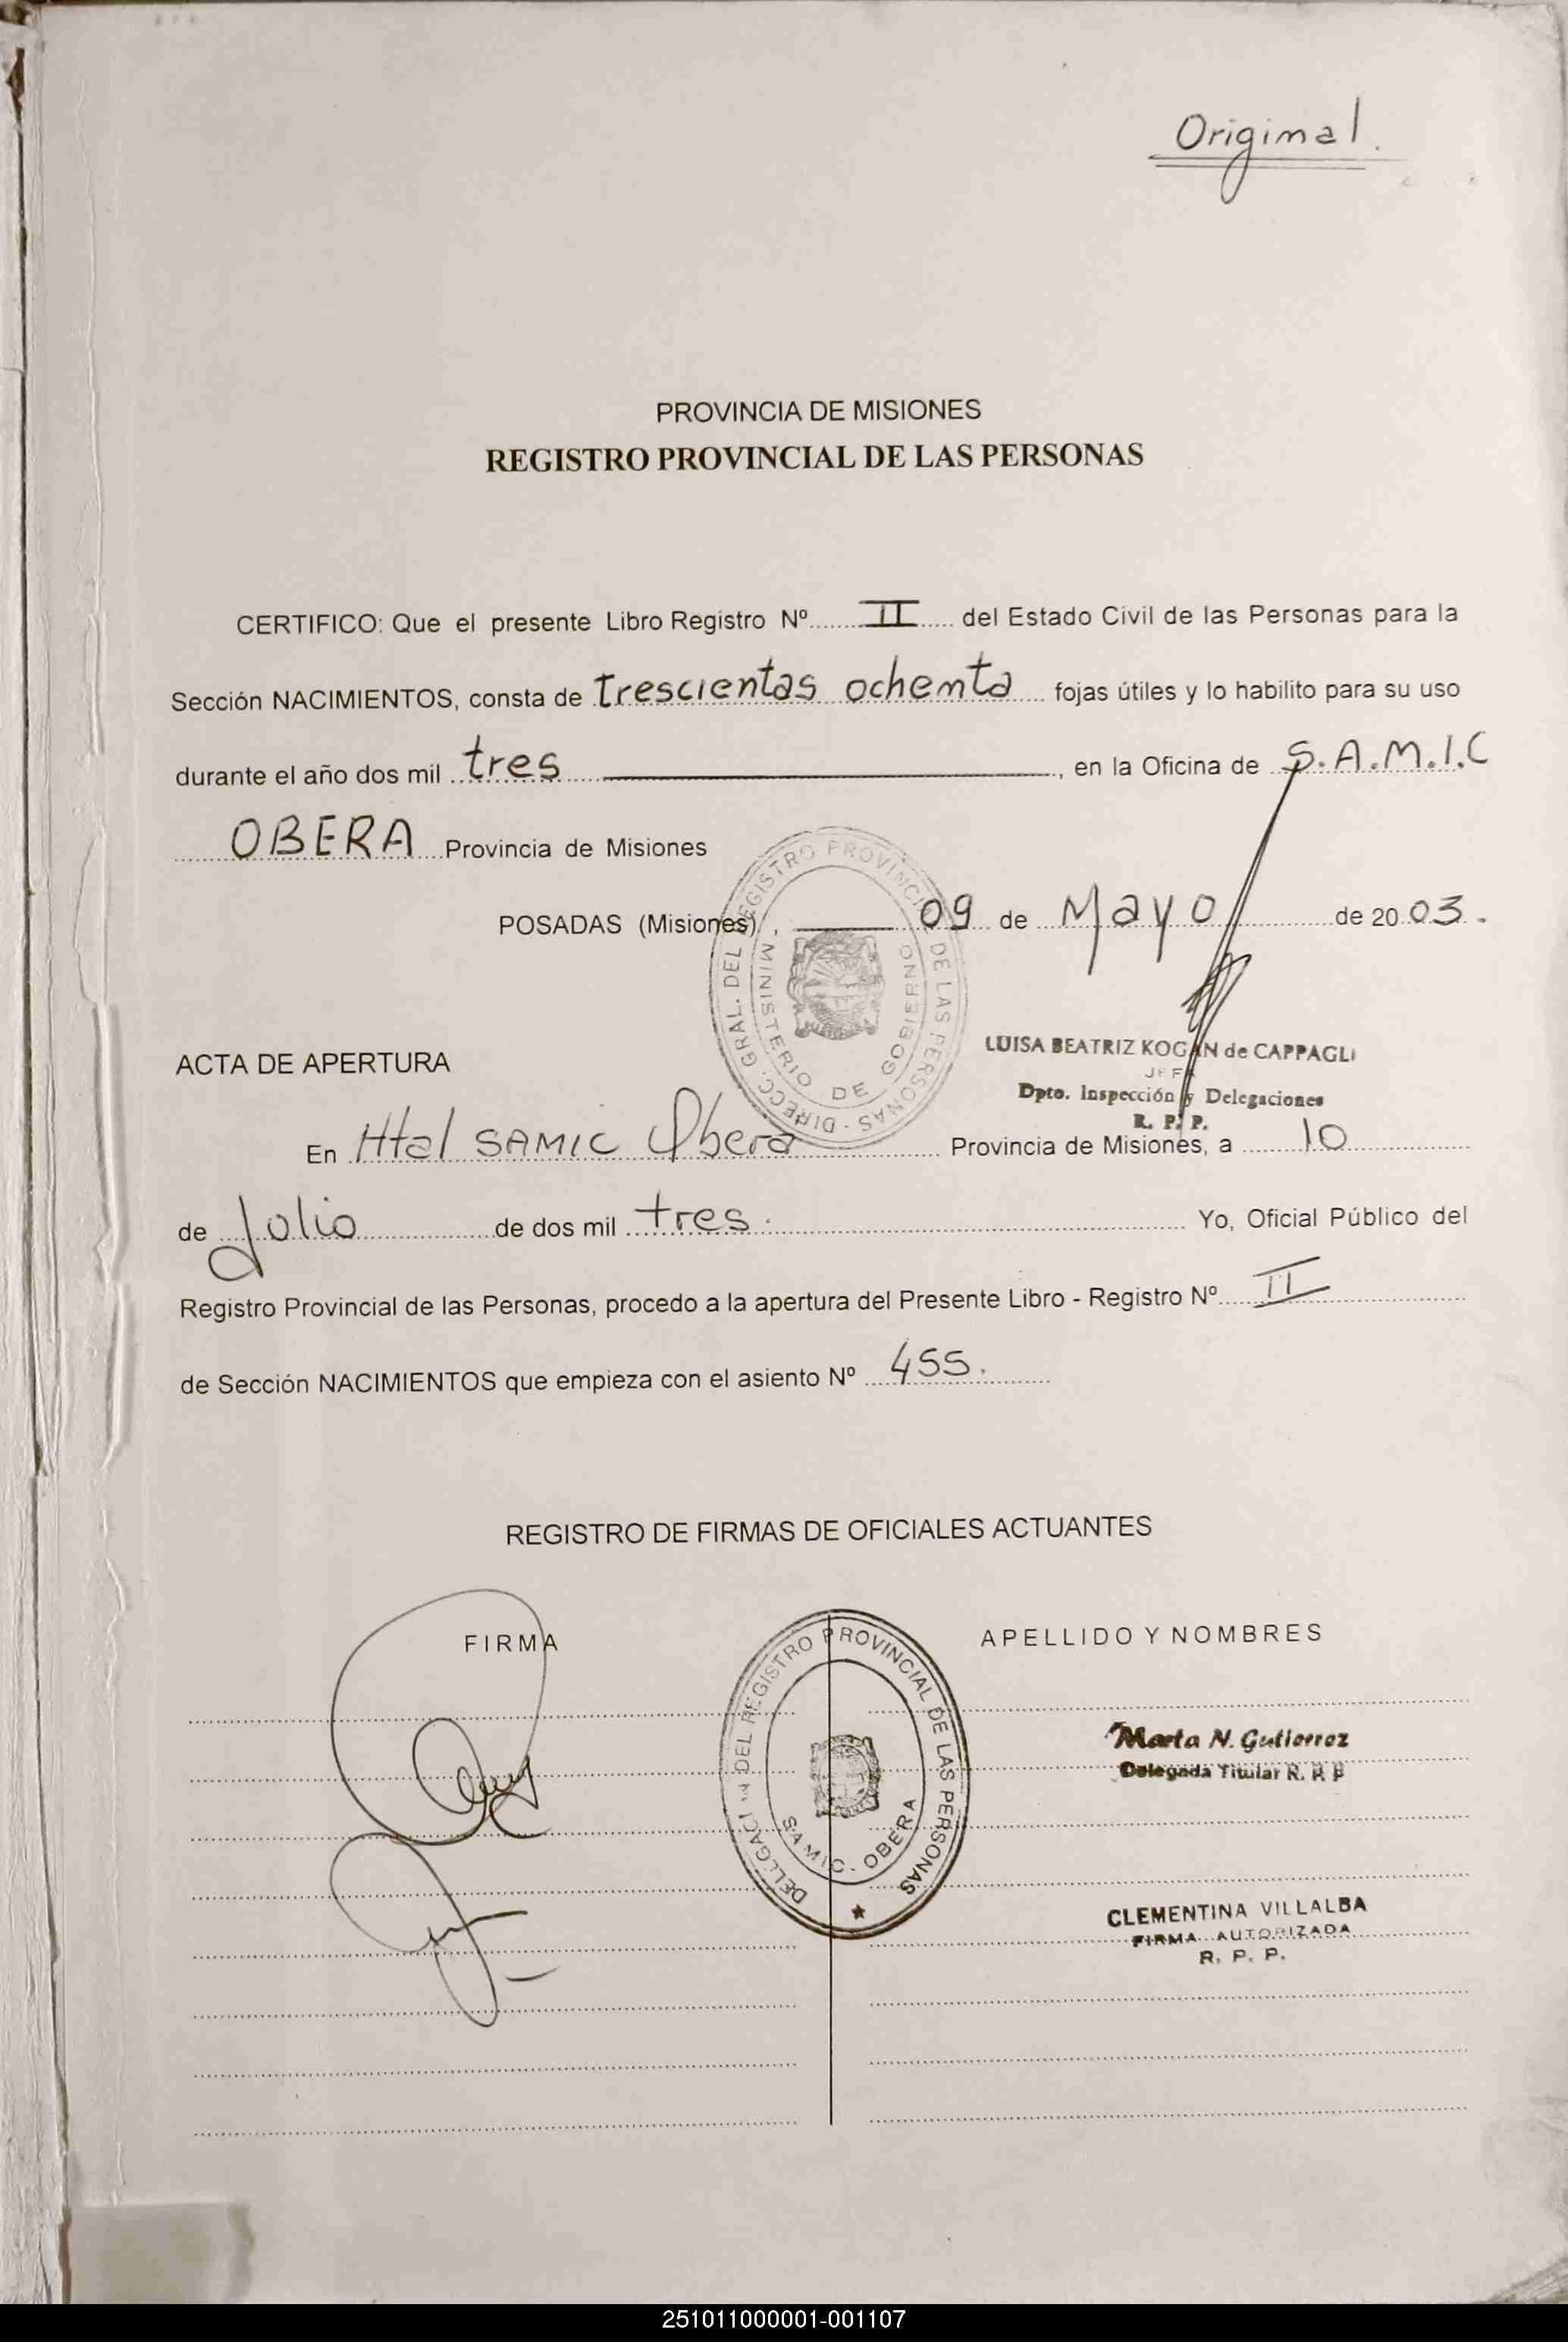 Original.
PROVINCIA DE MISIONES
REGISTRO PROVINCIAL DE LAS PERSONAS
CERTIFICO: Que el presente Libro Registro Nº II del Estado Civil de las Personas para la
Sección NACIMIENTOS, consta de trescientas ochenta fojas útiles y lo habilito para su uso
durante el año dos mil tres, en la Oficina de S.A.M.I.C
OBERA Provincia de Misiones
POSADAS (Misiones), 09 de Mayo de 2003.
DIRECC. GRAL. DEL REGISTRO PROVINCIAL DE LAS PERSONAS -
MINISTERIO DE GOBIERNO
LUISA BEATRIZ KOGAN de CAPPAGLI
JEFA
Dpto. Inspección y Delegaciones
R. P. P.
ACTA DE APERTURA
En Htal SAMIC Obera Provincia de Misiones, a 10
de Julio de dos mil tres. Yo, Oficial Público del
Registro Provincial de las Personas, procedo a la apertura del Presente Libro - Registro Nº II
de Sección NACIMIENTOS que empieza con el asiento Nº 455.
REGISTRO DE FIRMAS DE OFICIALES ACTUANTES
FIRMA
APELLIDO Y NOMBRES
DELEGACION DEL REGISTRO PROVINCIAL DE LAS PERSONAS
SAMIC - OBERA
Marta N. Gutierrez
Delegada Titular R. P. P
CLEMENTINA VILLALBA
FIRMA AUTORIZADA
R. P. P.
251011000001-001107